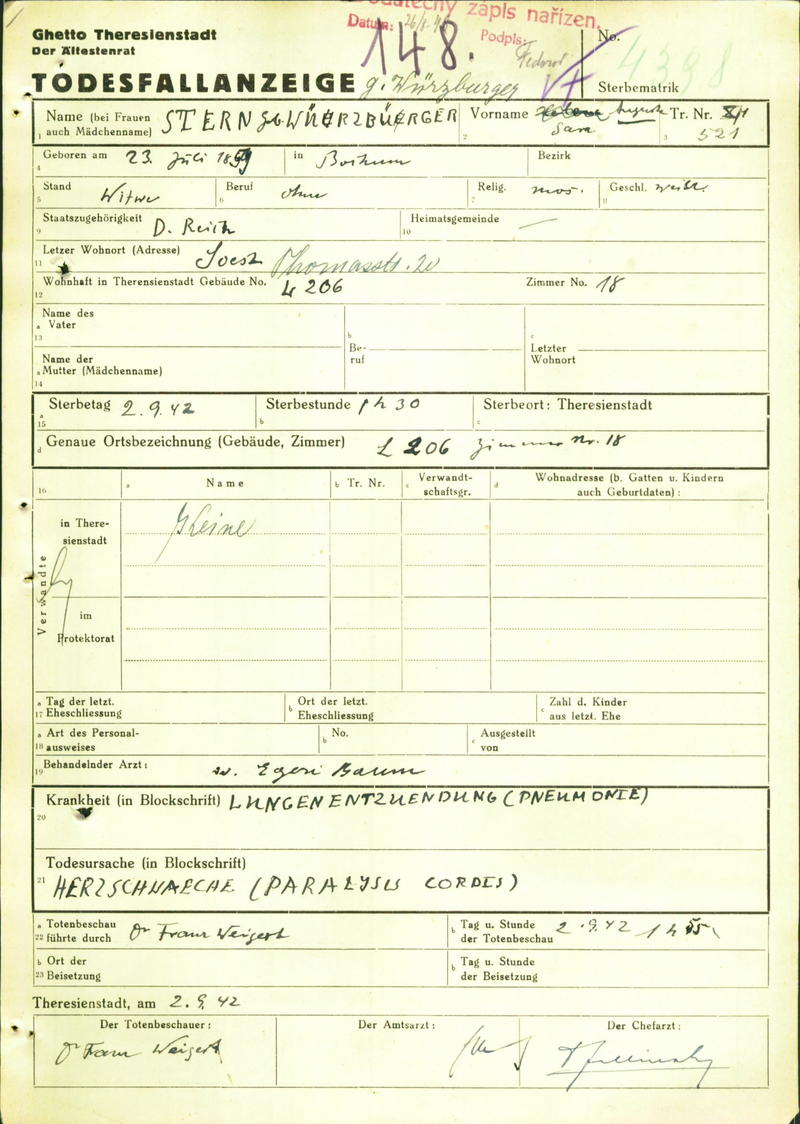 Dodatečný zápis nařízen.
Datum: 26/8. Podpis:
148.
No. 4398
Ghetto Theresienstadt
Der Ältestenrat
TODESFALLANZEIGE g. Würzburger
Sterbematrik
Name (bei Frauen auch Mädchenname) STERN Vorname Sara Tr. Nr.
1 2 3 521
4 Geboren am 23. Juli 1859 in Bochum Bezirk
5 Stand Witwe 6 Beruf ohne 7 Relig. mos. 8 Geschl. weibl.
9 Staatszugehörigkeit D. Reich 10 Heimatsgemeinde —
11 Letzer Wohnort (Adresse) Soest Thomasstr. 20
12 Wohnhaft in Therensienstadt Gebäude No. L 206 Zimmer No. 18
13 a Name des Vater b Beruf c Letzter Wohnort
14 a Name der Mutter (Mädchenname)
15 a Sterbetag 2.9.42 b Sterbestunde 1 h 30 c Sterbeort: Theresienstadt
d Genaue Ortsbezeichnung (Gebäude, Zimmer) L 206 Zimmer Nr. 18
16 a Name b Tr. Nr. c Verwandtschaftsgr. d Wohnadresse (b. Gatten u. Kindern auch Geburtdaten):
Verwandte
in Theresienstadt Keine
im Protektorat
17 a Tag der letzt. Eheschliessung b Ort der letzt. Eheschliessung c Zahl d. Kinder aus letzt. Ehe
18 a Art des Personalausweises b No. c Ausgestellt von
19 Behandelnder Arzt: Baum
20 Krankheit (in Blockschrift) LUNGENENTZUENDUNG (PNEUMONIE)
21 Todesursache (in Blockschrift)
HERZSCHWAECHE (PARALYSIS CORDES)
22 a Totenbeschau führte durch Dr Franz Weigert b Tag u. Stunde der Totenbeschau 2.9.42
23 b Ort der Beisetzung b Tag u. Stunde der Beisetzung
Theresienstadt, am 2.9.42
Der Totenbeschauer: Der Amtsarzt: Der Chefarzt:
Dr Franz Weigert